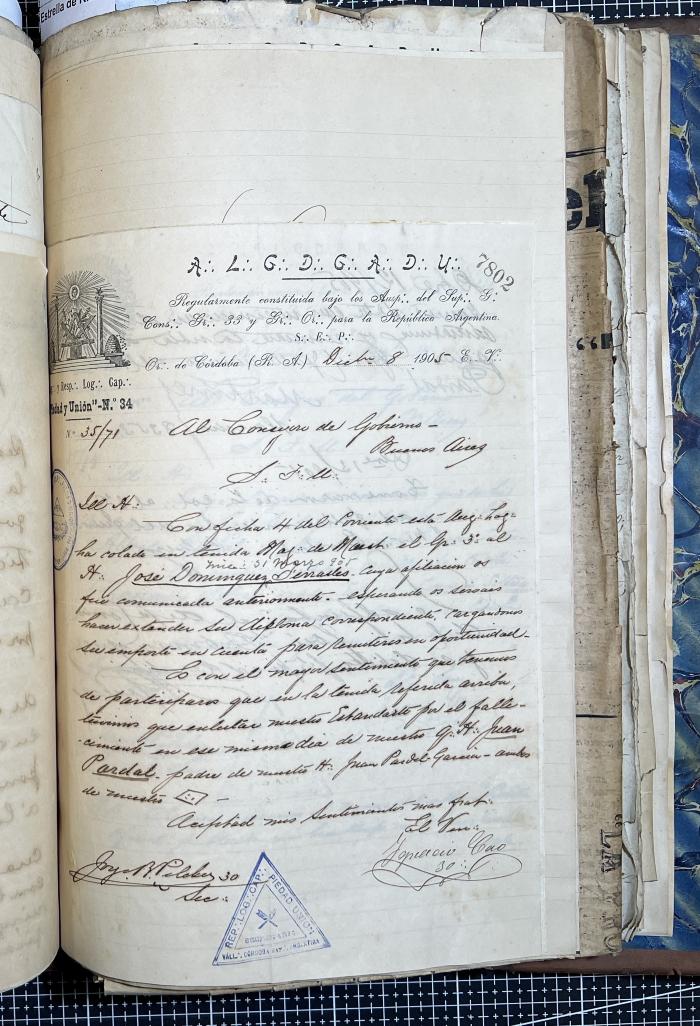 Estrella de
A∴ L∴ G∴ D∴ G∴ A∴ D∴ U∴
7802
Regularmente constituida bajo los Ausp∴ del Sup∴ G∴
Cons∴ Gr∴ 33 y Gr∴ Or∴ para la República Argentina.
S∴ E∴ P∴
Or∴ de Córdoba (R. A.) Dicbr 8 1905 E∴ V∴
y Resp∴ Log∴ Cap∴
edad y Unión"-N.° 34
N° 35/71
Al Consejero de Gobierno -
Buenos Aires
S∴ F∴ U∴
Ill H∴
Con fecha 4 del Corriente esta Aug∴ Log∴
ha colado en tenida Mag∴ de Maest∴ el Gr∴ 3° al
inic∴ 31 Marzo 905
H∴ José Dominguez Perrales. cuya afiliacion os
fue comunicada anteriormente. esperando os sirvais
hacer extender su diploma correspondiente, cargandonos
su importe en cuenta para remiteros en oportunidad.
Es con el mayor sentimiento que tenemos
de participaros que en la tenida referida arriba,
tuvimos que enlutar nuestro Estandarte por el falle-
cimiento en ese mismo dia de nuestro q∴ H∴ Juan
Pardal. padre de nuestro H∴ Juan Pardal Garcia - ambos
de nuestro
Aceptad mis sentimientos mas frat∴
El Ven∴
Ignacio Cao
30∴
Jorge 30
Sec∴
RESP∴ LOG∴ CAP∴ PIEDAD Y UNION
VALL∴ CORDOBA REP∴ ARGENTINA
el